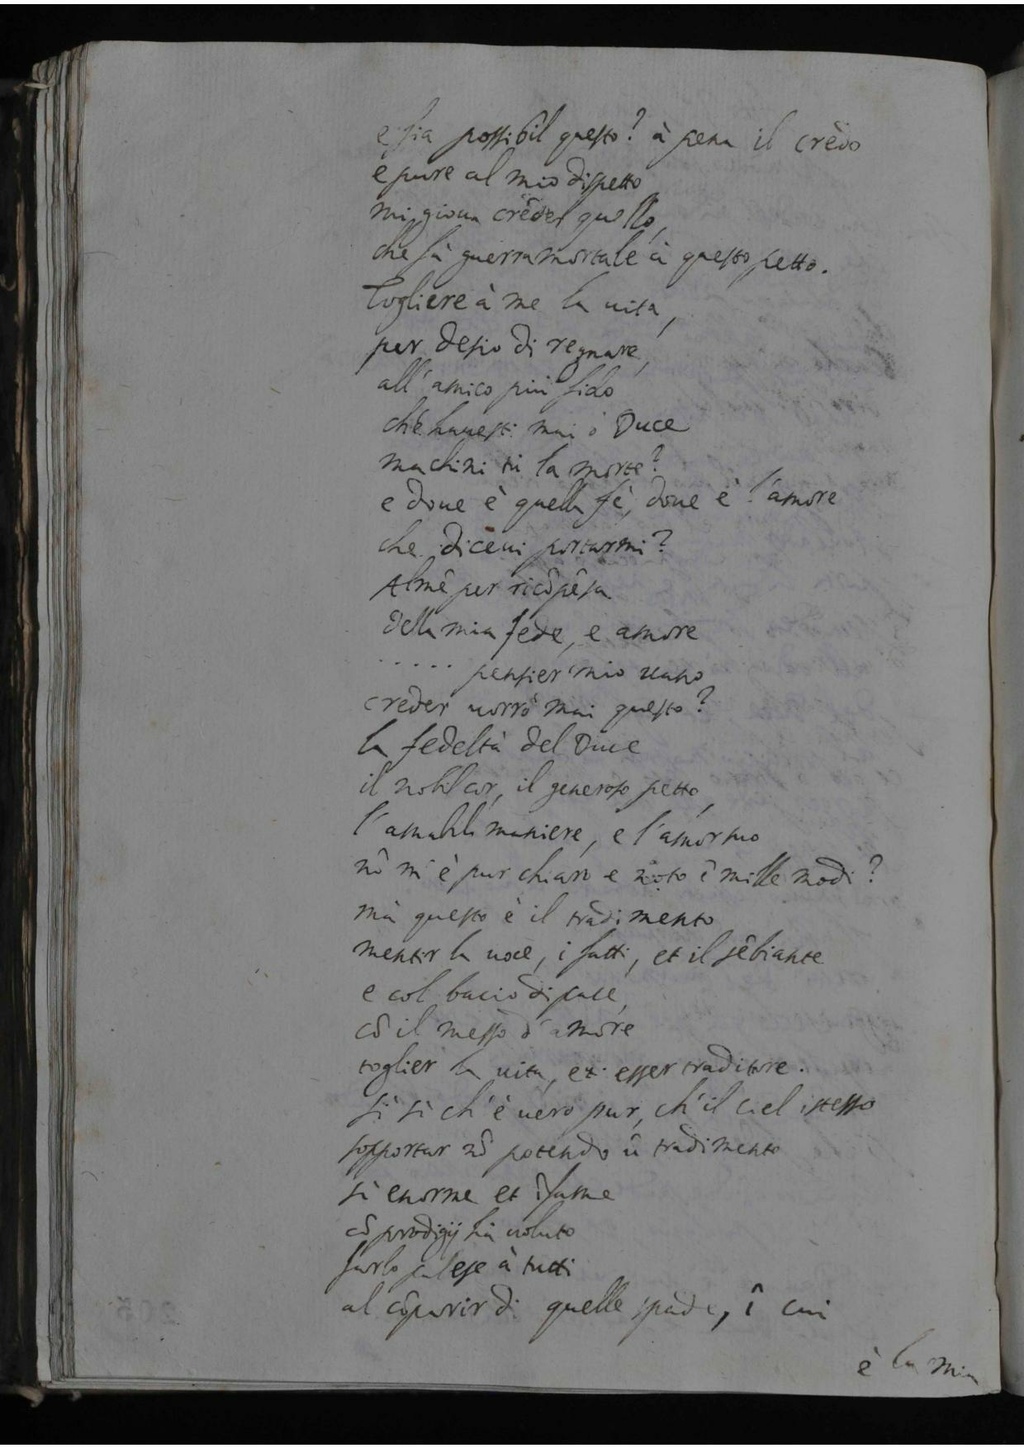 e fia possibil questo? à pena il crêdo
e pure al mio dispetto
mi gioua crêder quello,
che fà guerra mortale à questo petto.
Togliere à me la uita,
per desio di regnare,
all'amico più fido
che hauesti mai ò Duce
machini tù la morte?
e doue è quella fè, doue è l'amore
che diceui portarmi?
Almê per ricôpêsa
della mia fede, e amore
..... pensier mio uano
creder uorrò mai questo?
la fedeltà del Duce
il nobil cor, il generoso petto,
l'amabili maniere, e l'amor suo
nô m'è pur chiaro e noto î mille modi?
mà questo è il tradimento
mentir la uoce, i fatti, et il sêbiante
e col bacio di pace,
cô il messo d'amore
toglier la uita, et esser traditore.
sì sì ch'è uero pur, ch'il ciel istesso
sopportar nô potendo û tradimento
sì enorme et îfame
cô prodigij hà uoluto
farlo palese à tutti
al côparir di quelle spade, î cui
è la mia